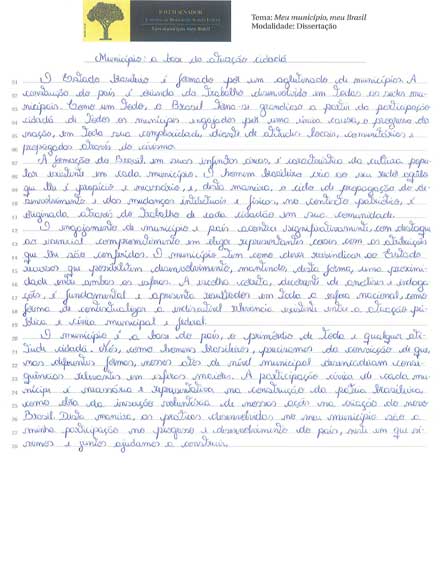 JOVEM SENADOR
Tema: Meu município, meu Brasil
Modalidade: Dissertação
Município: a base da atuação cidadã
01 O Estado Brasileiro é formado por um aglutinado de municípios. A
02 constituição do país é oriunda do trabalho desenvolvido em todas as sedes mu-
03 nicipais. Como um todo, o Brasil torna-se grandioso a partir da participação
04 cidadã de todos os munícipes engajados por uma única causa, o progresso da
05 nação, em toda sua complexidade, através de atitudes locais, comunitárias e
06 propagadas através do civismo.
07 A formação do Brasil em suas infinitas áreas é característica da cultura popu-
08 lar existente em cada município. O homem brasileiro cria ao seu redor aquilo
09 que lhe é propício e necessário e, desta maneira, o ciclo de propagação do de-
10 senvolvimento e das mudanças intelectuais e físicas, no contexto patriótico, é
11 originado através do trabalho de cada cidadão em sua comunidade.
12 O engajamento de município e país acontece significativamente, com destaque
13 ao essencial comprometimento em eleger representantes coesos com as atribuições
14 que lhe são conferidas. O município tem como dever reivindicar ao Estado
15 recursos que possibilitem desenvolvimento, mantendo, desta forma, uma proximi-
16 dade entre ambas as esferas. A escolha correta, decorrente de análises e indaga-
17 ções, é fundamental e apresenta resultados em toda a esfera nacional, como
18 forma de contextualizar a indiscutível relevância existente entre a atuação pú-
19 blica e cívica municipal e federal.
20 O município é a base do país, o primórdio de toda e qualquer ati-
21 tude cidadã. Nós, como homens brasileiros, precisamos da convicção de que,
22 nas diferentes formas, nossos atos de nível municipal desencadeiam conse-
23 quências relevantes em esferas maiores. A participação cívica de cada mu-
24 nícipe é necessária e representativa na construção da pátria brasileira
25 como ideia da inserção voluntária de nossas ações na criação do novo
26 Brasil. Desta maneira, as práticas desenvolvidas no meu município são a
27 minha participação no progresso e desenvolvimento do país, neste em que vi-
28 vemos e juntos ajudamos a construir.